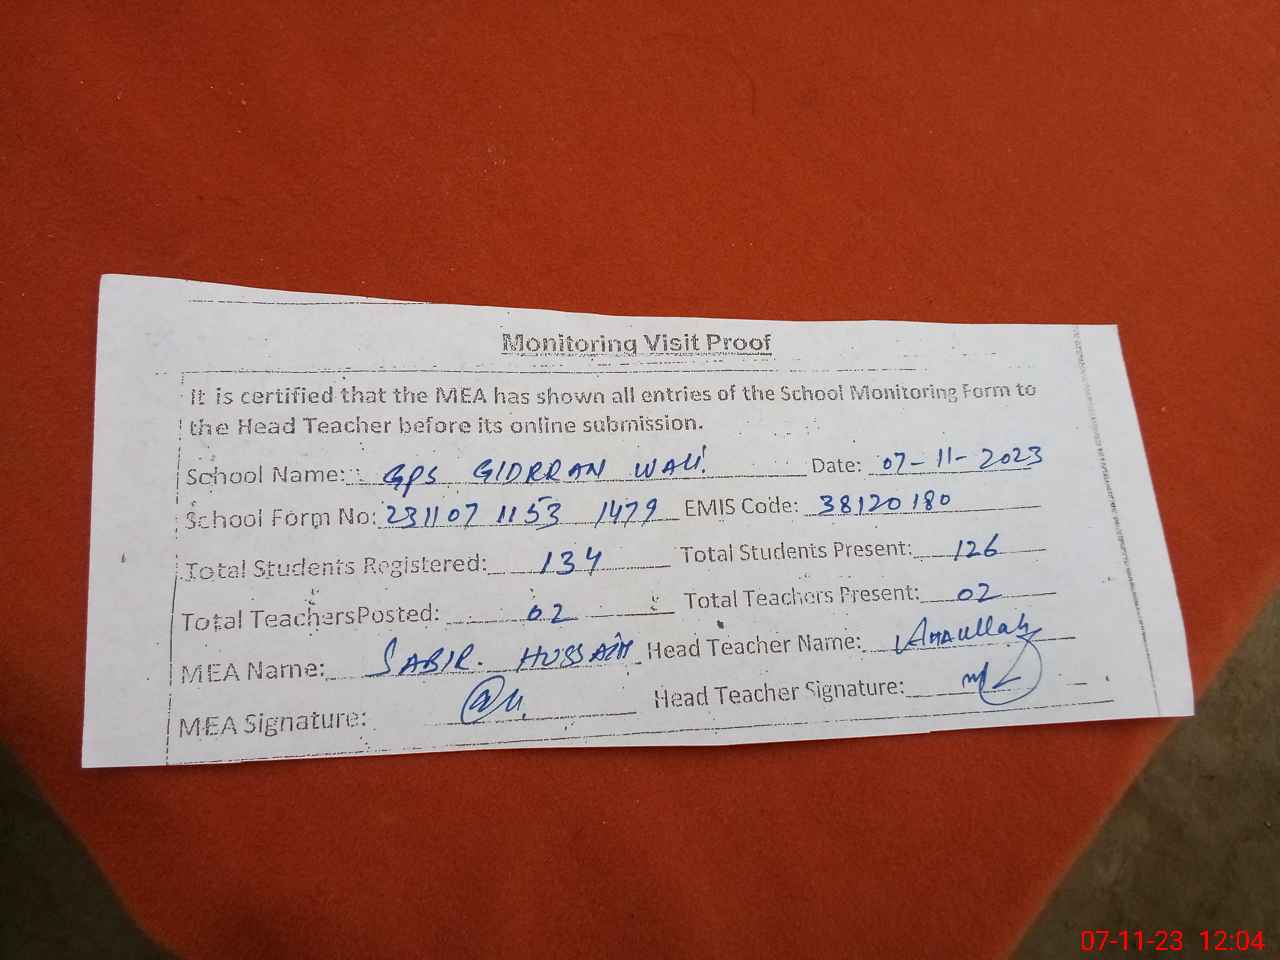 Monitoring Visit Proof
It is certified that the MEA has shown all entries of the School Monitoring Form to
the Head Teacher before its online submission.
School Name: GPS GIDRRAN WALI Date: 07-11-2023
School Form No: 231107 1153 1479 EMIS Code: 38120180
Total Students Registered: 134 Total Students Present: 126
Total TeachersPosted: 02 Total Teachers Present: 02
MEA Name: SABIR. HUSSAIN Head Teacher Name: Amaullah
MEA Signature: Head Teacher Signature:
07-11-23 12:04